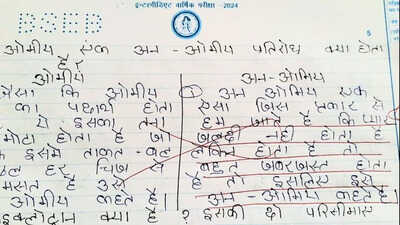 इन्टरमीडिएट वार्षिक परीक्षा -2024
BSEB
5
ओमीय एक अन - ओमीय प्रतिरोध क्या होता
है?
ओमीय
अन-ओमिय
कि ओमीय
① अन ओमिय एक
का पदार्थ होता
ऐसा जिस प्रकार से
से इसका तना
हम जाते है कि प्यार
मोटा होता है जो
जबरदस्ती नही होता है
इसमे ताकत-बल
लेकिन होता है तो
हर चिज से
बहुत जबरजस्त होता
है उसे
है तो इसलिए इसे
ओमीय कहते है।
अन - ओमिय कहते है।
क्या है ? इसकी दो परिसीमाए